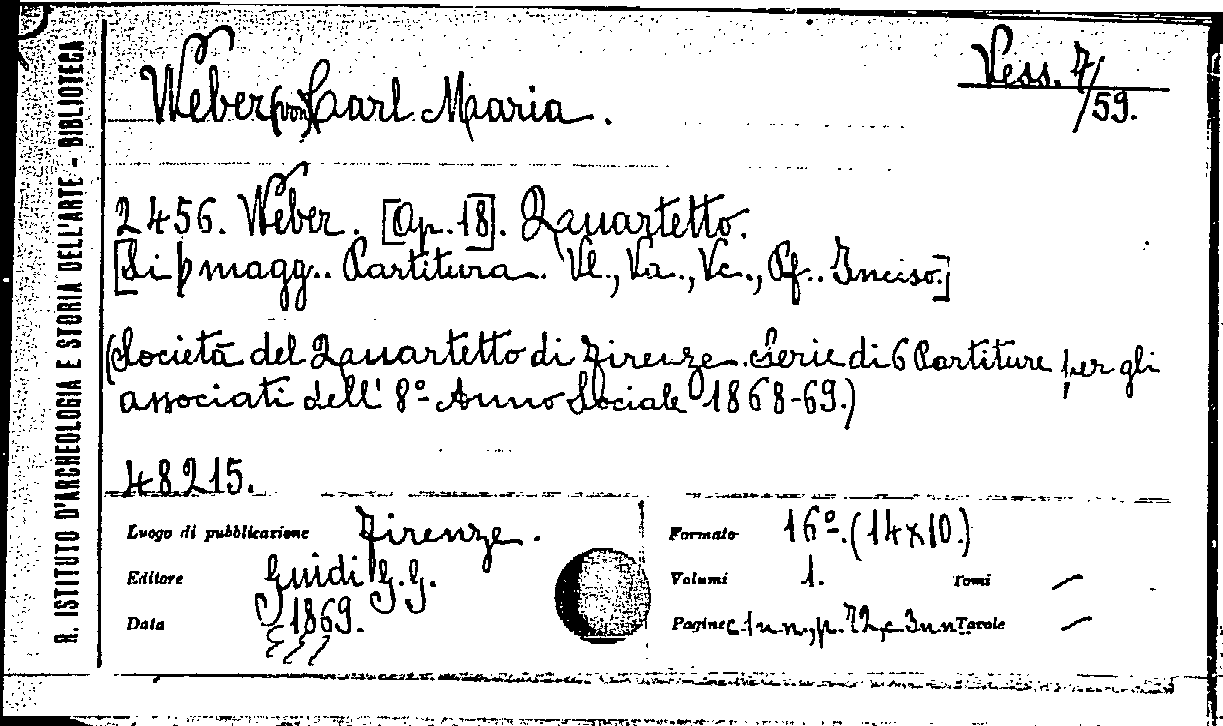 R. ISTITUTO D'ARCHEOLOGIA E STORIA DELL'ARTE - BIBLIOTECA
Vess. 7/59.
Weber (von) Carl Maria.
2456. Weber. [Op. 18]. Quartetto.
[Si♭ magg.. Partitura. Vl., Va., Vc., Pf.. Inciso.]
(Società del Quartetto di Firenze. Serie di 6 Partiture per gli
associati dell' 8º Anno Sociale 1868-69.)
48215.
Luogo di pubblicazione Firenze.
Editore Guidi G.G.
Data 1869.
Formato 16º. (14x10.)
Volumi 1. Tomi —
Pagine c. 1 n n, p. 72, c. 3 n n. Tavole —